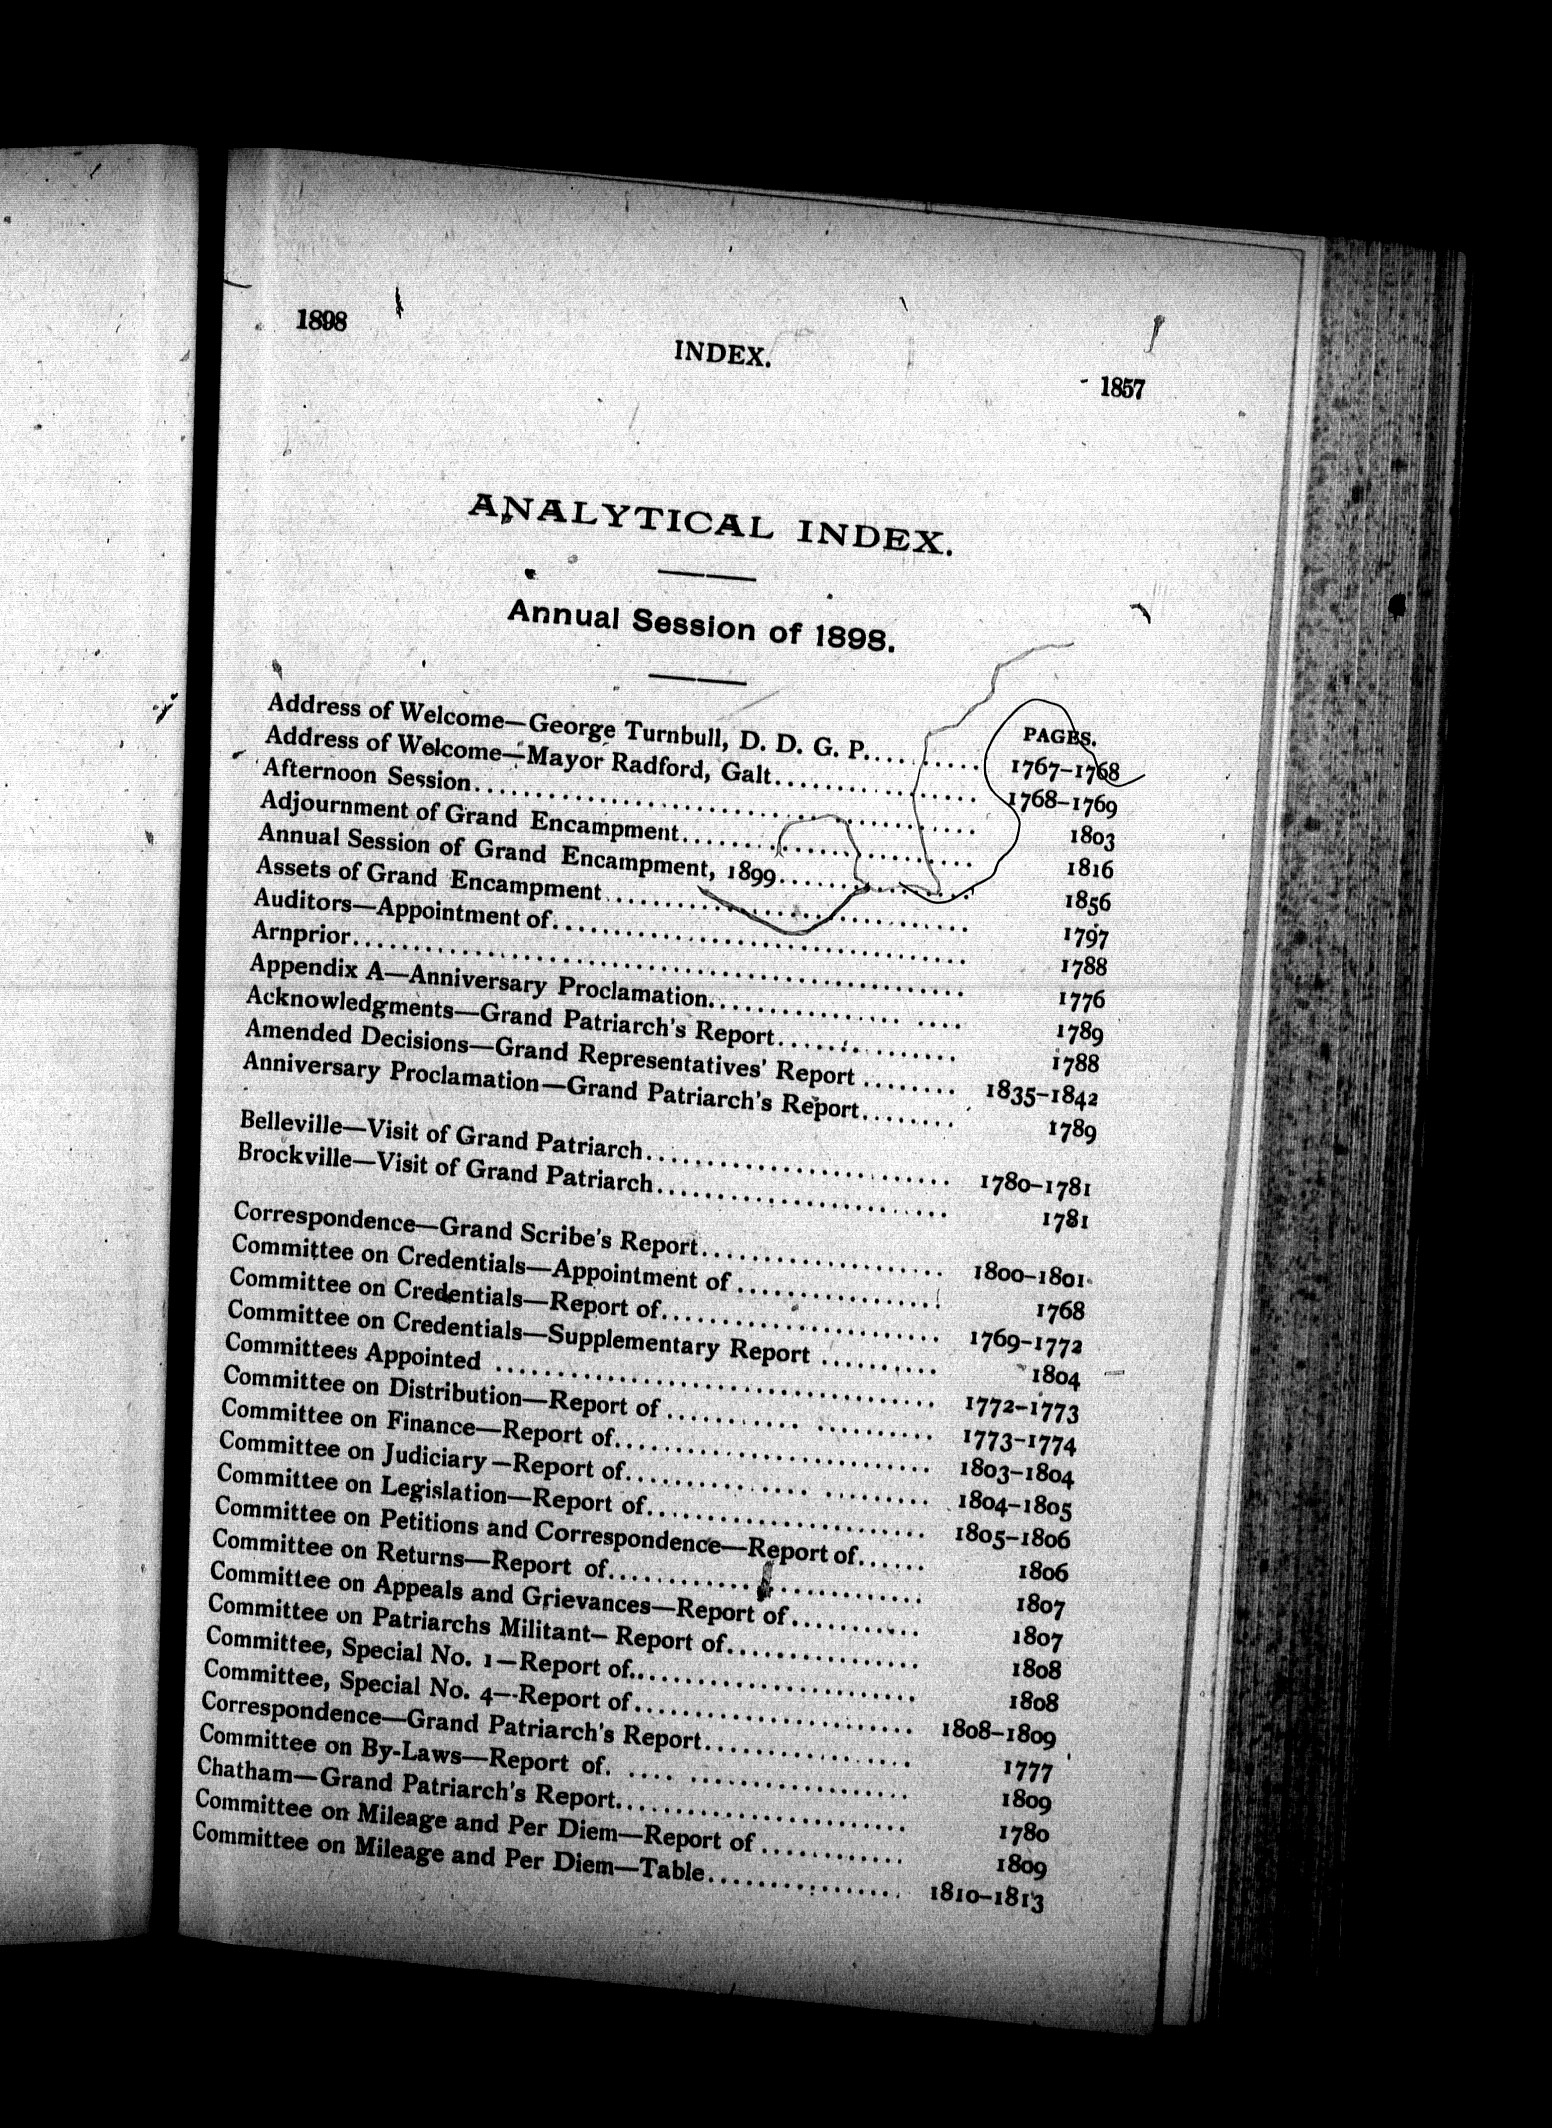 1898
INDEX.
1857
ANALYTICAL INDEX.
Annual Session of 1898.
PAGES.
Address of Welcome—George Turnbull, D. D. G. P. 1767–1768
Address of Welcome—Mayor Radford, Galt 1768–1769
Afternoon Session 1803
Adjournment of Grand Encampment 1816
Annual Session of Grand Encampment, 1899 1856
Assets of Grand Encampment 1797
Auditors—Appointment of 1788
Arnprior 1776
Appendix A—Anniversary Proclamation 1789
Acknowledgments—Grand Patriarch's Report 1788
Amended Decisions—Grand Representatives' Report 1835–1842
Anniversary Proclamation—Grand Patriarch's Report 1789
Belleville—Visit of Grand Patriarch 1780–1781
Brockville—Visit of Grand Patriarch 1781
Correspondence—Grand Scribe's Report 1800–1801
Committee on Credentials—Appointment of 1768
Committee on Credentials—Report of 1769–1772
Committee on Credentials—Supplementary Report 1804
Committees Appointed 1772–1773
Committee on Distribution—Report of 1773–1774
Committee on Finance—Report of 1803–1804
Committee on Judiciary—Report of 1804–1805
Committee on Legislation—Report of 1805–1806
Committee on Petitions and Correspondence—Report of 1806
Committee on Returns—Report of 1807
Committee on Appeals and Grievances—Report of 1807
Committee on Patriarchs Militant—Report of 1808
Committee, Special No. 1—Report of 1808
Committee, Special No. 4—Report of 1808–1809
Correspondence—Grand Patriarch's Report 1777
Committee on By-Laws—Report of 1809
Chatham—Grand Patriarch's Report 1780
Committee on Mileage and Per Diem—Report of 1809
Committee on Mileage and Per Diem—Table 1810–1813